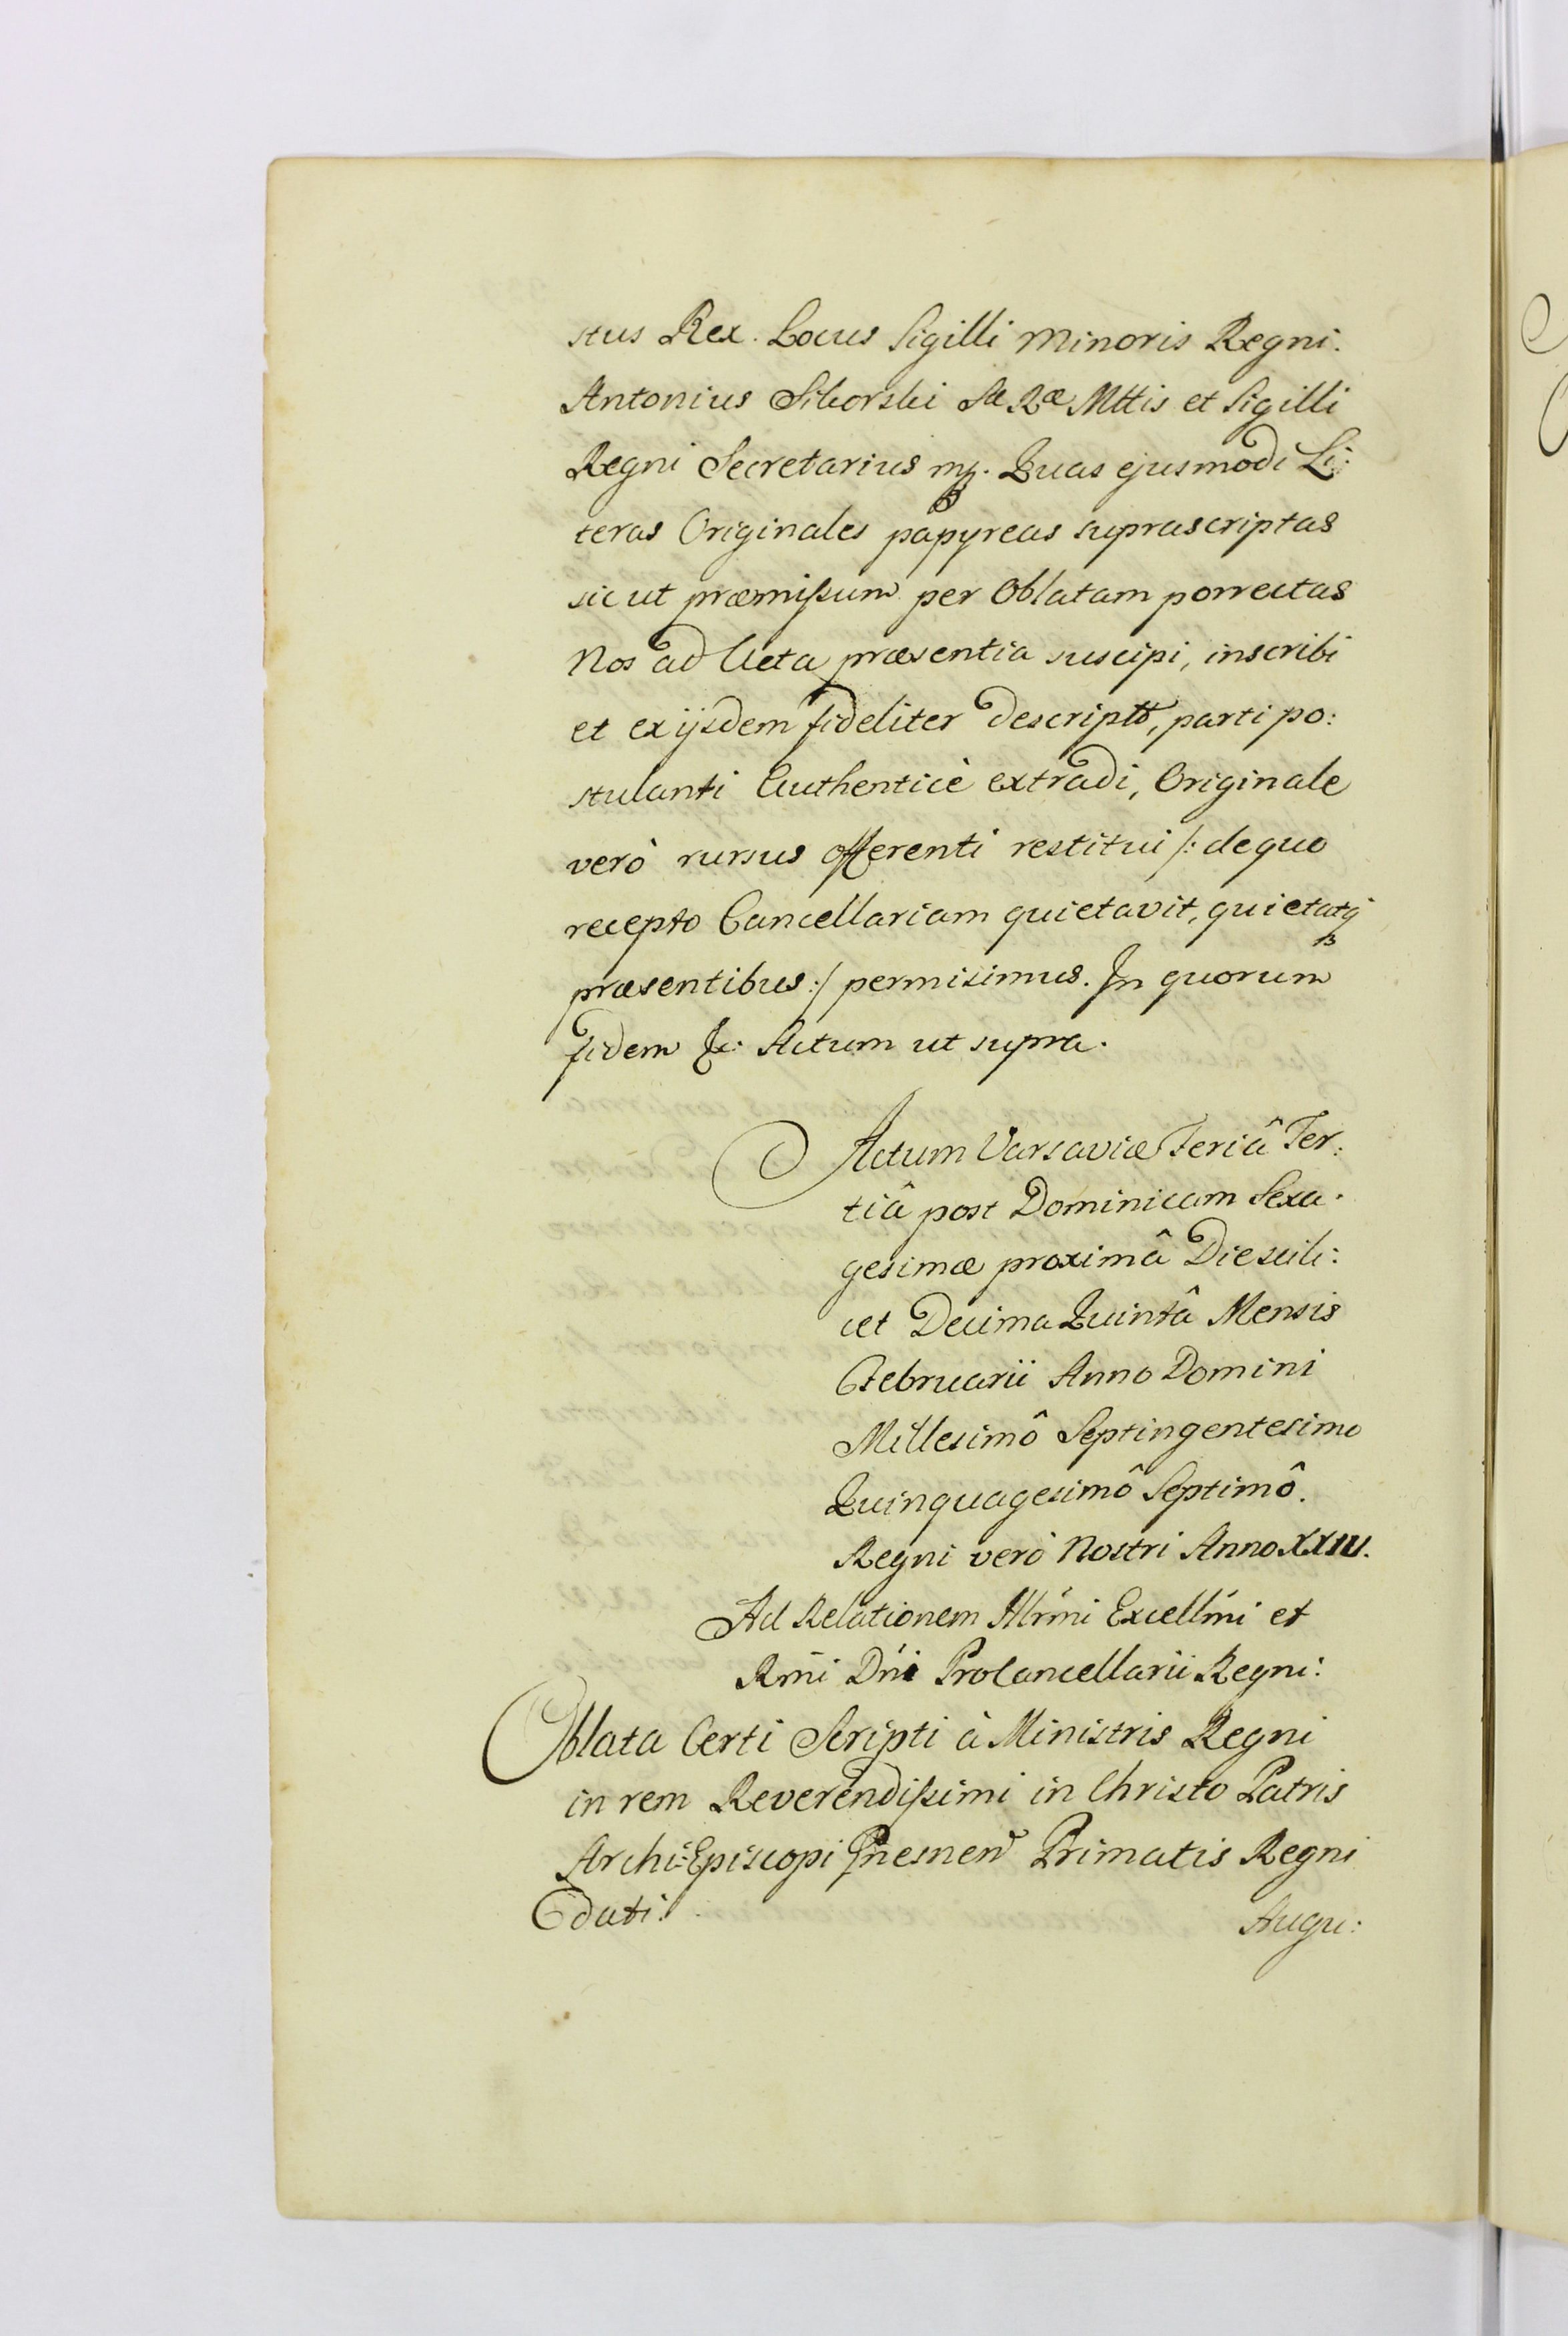 stus Rex. Locus Sigilli Minoris Regni.
Antonius Sikorski Sæ Ræ Mttis et Sigilli
Regni Secretarius mp. Quas ejusmodi Li:
teras Originales papyreas suprascriptas
sic ut præmissum per Oblatam porrectas
Nos ad Acta præsentia suscipi, inscribi
et ex ijsdem fideliter descriptt, parti po:
stulanti Authenticè extradi, Originale
verò rursus offerenti restitui /: de quo
recepto Cancellariam quietavit, quietatq
præsentibus :/ permisimus. In quorum
fidem &c: Actum ut supra.
Actum Varsaviæ Feriâ Ter:
tiâ post Dominicam Sexa:
gesimæ proximâ Die scili:
cet Decima Quintâ Mensis
Februarii Anno Domini
Millesimô Septingentesimo
Quinquagesimô Septimô.
Regni verò Nostri Anno XXIV.
Ad Relationem Illrm̃i Excellm̃i et
Rm̃i Dñi ProCancellarii Regni:
Oblata Certi Scripti à Ministris Regni
in rem Reverendissimi in Christo Patris
Archi-Episcopi Gnesnen Primatis Regni
dati.
Augu: